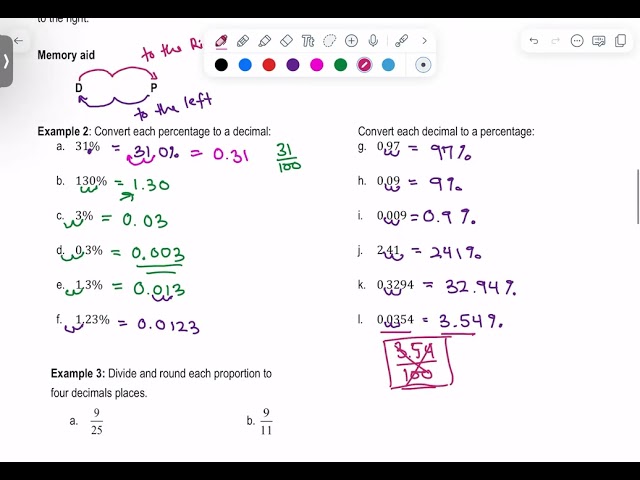 to the right.
Memory aid
to the Ri
D P
to the left
Example 2: Convert each percentage to a decimal:
a. 31% = 31.0% = 0.31 31/100
b. 130% = 1.30
c. 3% = 0.03
d. 0.3% = 0.003
e. 1.3% = 0.013
f. 1.23% = 0.0123
Convert each decimal to a percentage:
g. 0.97 = 97%
h. 0.09 = 9%
i. 0.009 = 0.9%
j. 2.41 = 241%
k. 0.3294 = 32.94%
l. 0.0354 = 3.54%
3.54
100
Example 3: Divide and round each proportion to
four decimals places.
a. 9/25 b. 9/11